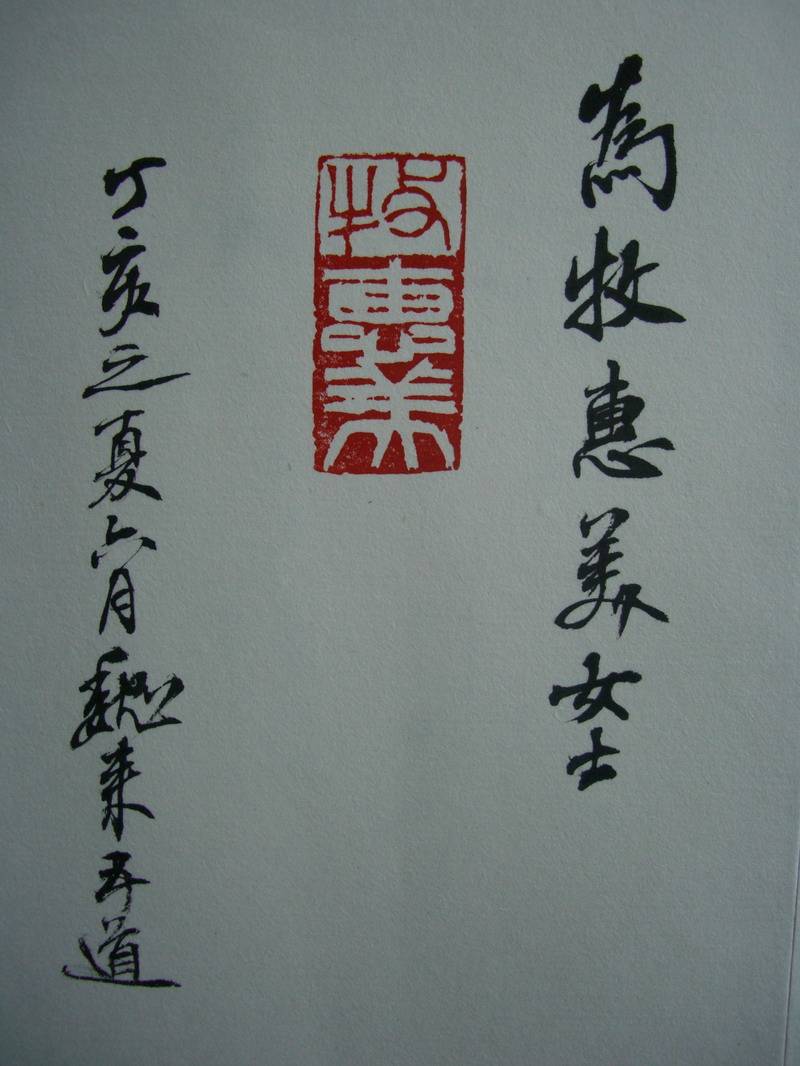 為牧惠美女士
牧惠美
丁亥之夏六月魏來五道